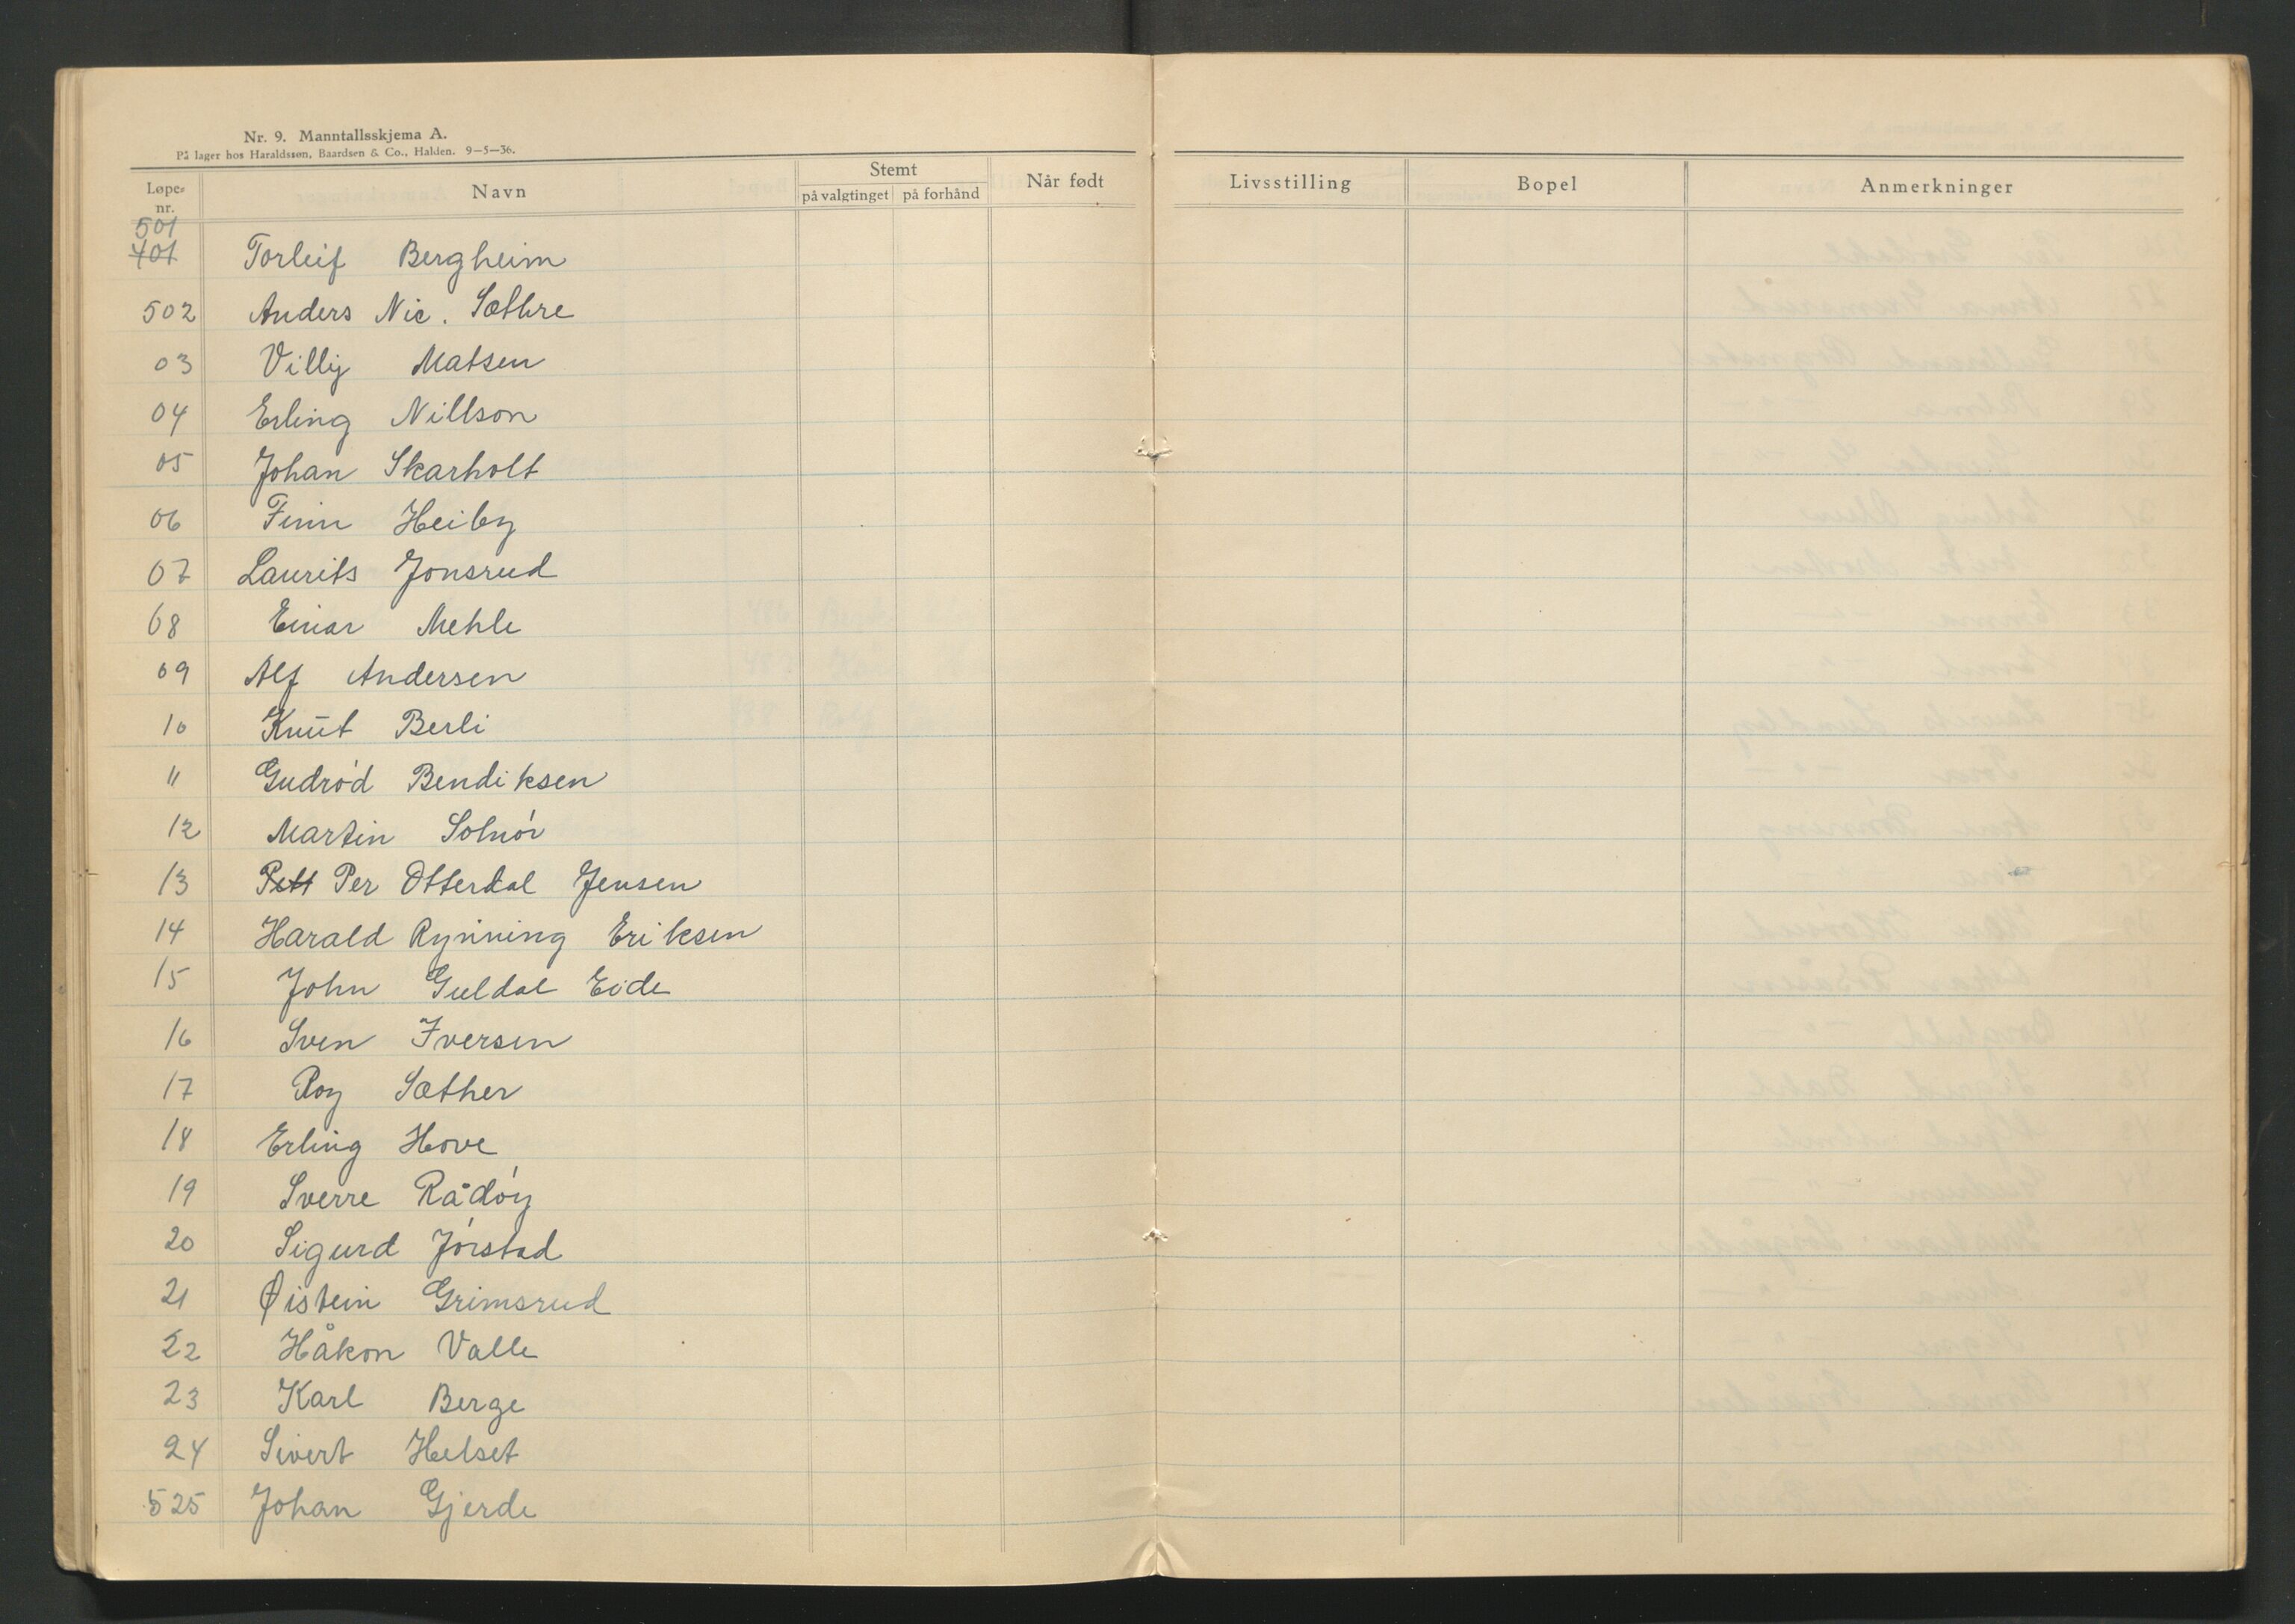 Nr. 9. Manntallsskjema A.
På lager hos Haraldssøn, Baardsen & Co., Halden. 9—5—36.
Løpe-nr. Navn Stemt på valgtinget på forhånd Når født Livsstilling Bopel Anmerkninger
501
401 Torleif Bergheim
502 Anders Nic. Sæthre
03 Villy Matsen
04 Erling Nillson
05 Johan Skarholt
06 Finn Heiby
07 Laurits Jonsrud
08 Einar Mehle
09 Alf Andersen
10 Knut Berli
11 Gudrød Bendiksen
12 Martin Solnør
13 Pett Per Otterdal Jensen
14 Harald Rynning Eriksen
15 John Guldal Eide
16 Sven Iversen
17 Roy Sæther
18 Erling Hove
19 Sverre Rådøy
20 Sigurd Jørstad
21 Øistein Grimsrud
22 Håkon Valle
23 Karl Berge
24 Sivert Helset
525 Johan Gjerde